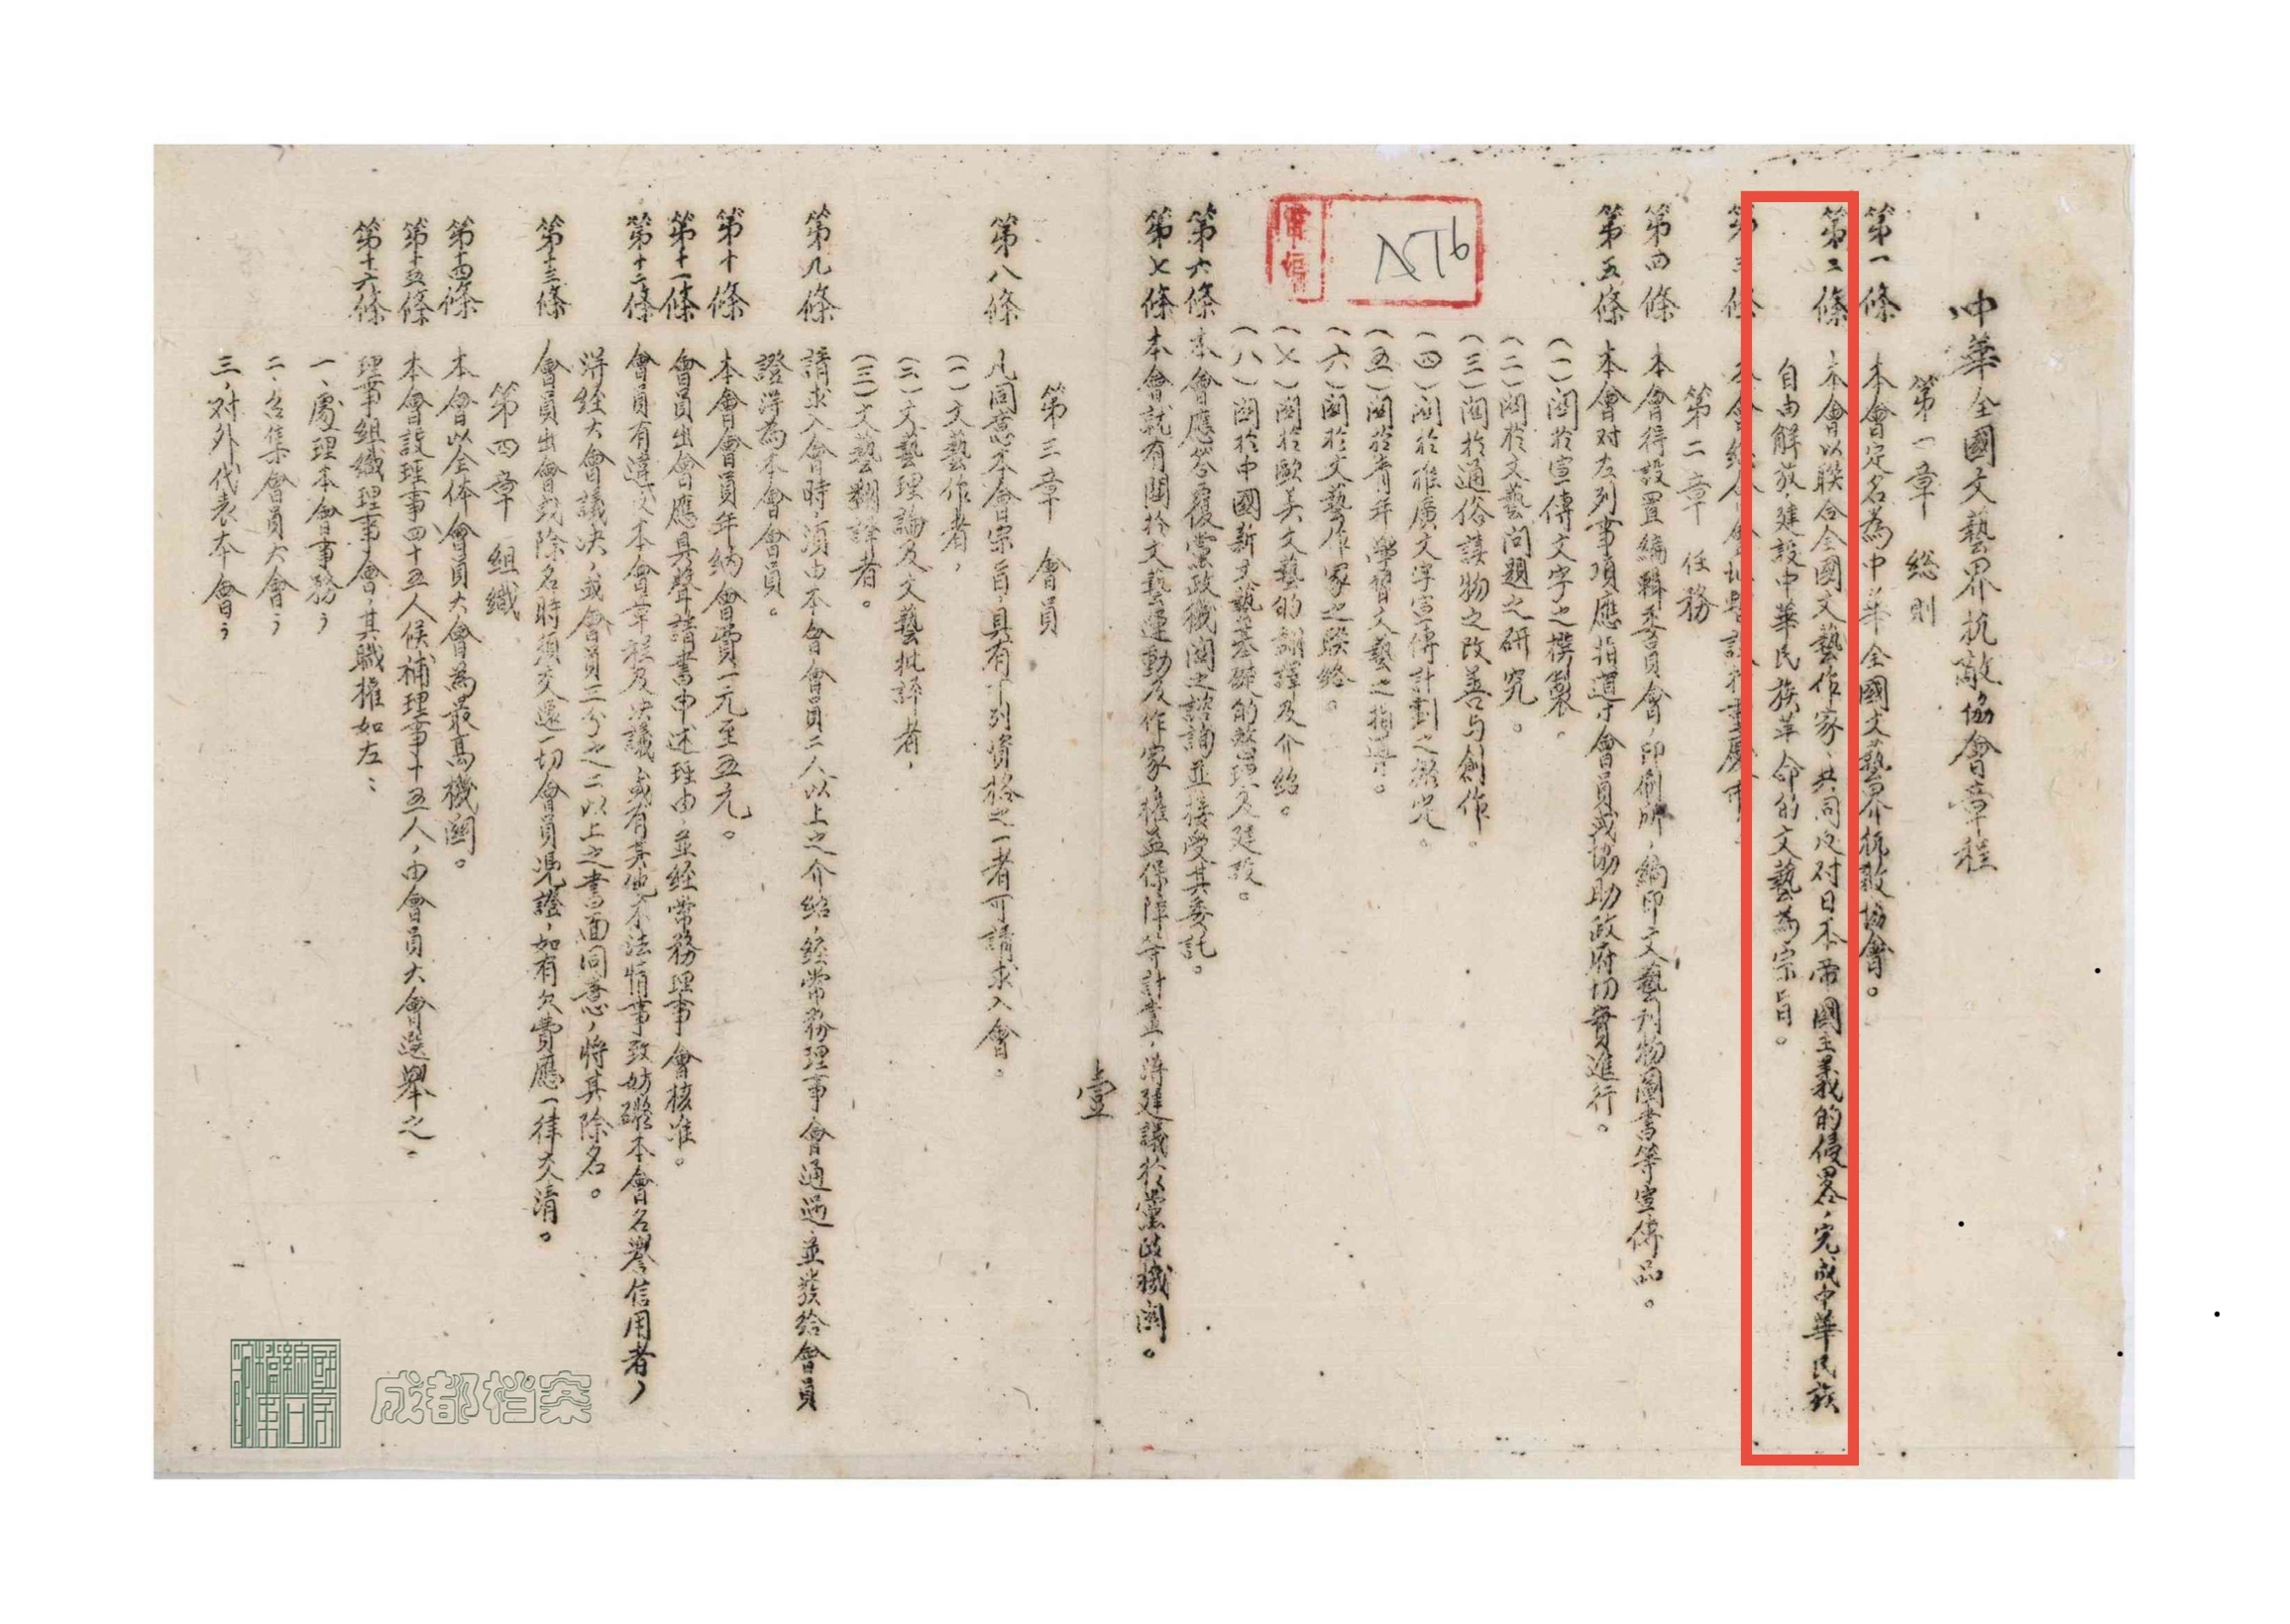 中華全國文藝界抗敵協會章程
第一章　總則
第一條　本會定名為中華全國文藝界抗敵協會。
第二條　本會以聯合全國文藝作家，共同反对日本帝國主義的侵畧，完成中華民族
自由解放，建設中華民族革命的文藝為宗旨。
第三條　本會總會會址暫設於重慶市。
第二章　任務
第四條　本會得設置編輯委員會，印刷所，編印文藝刊物圖書等宣傳品。
第五條　本會对左列事項應指導會員或協助政府切實進行。
（一）関於宣傳文字之撰製。
（二）関於文藝问題之研究。
（三）関於通俗讀物之改善与創作。
（四）関於推廣文字宣傳計劃之研究。
（五）関於青年學習文藝之指導。
（六）関於文藝作家之聯絡。
（七）関於歐美文藝的翻譯及介紹。
（八）関於中國新文藝基礎的整理及建設。
第六條　本會應答覆黨政機関之諮詢並接受其委託。
第七條　本會就有関於文藝運動及作家權益保障等計畫，得建議於黨政機関。
壹
第三章　會員
第八條　凡同意本會宗旨，具有下列資格之一者可請求入會。
（一）文藝作者，
（二）文藝理論及文藝批評者，
（三）文藝翻譯者。
第九條　請求入會時，須由本會會員二人以上之介紹，經常務理事會通過，並發給會員
證得為本會會員。
第十條　本會會員年納會費一元至五元。
第十一條　會員出會應具聲請書申述理由，並経常務理事會核准。
第十二條　會員有違反本會章程及決議，或有其他不法情事致妨礙本會名譽信用者，
得経大會議决，或會員三分之二以上之書面同意，將其除名。
第十三條　會員出會或除名時須交還一切會員憑證，如有欠費應一律交清。
第四章　組織
第十四條　本會以全体會員大會為最高機関。
第十五條　本會設理事四十五人候補理事十五人，由會員大會選舉之。
第十六條　理事組織理事會，其職權如左：
一、處理本會事務，
二、召集會員大會，
三、对外代表本會，
成都档案